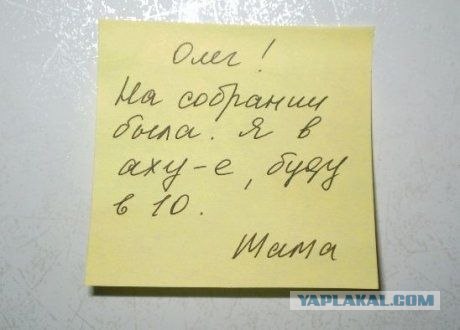 Олег!
На собрании
была. Я в
аху-е, буду
в 10.
Мама
YAPLAKAL.COM